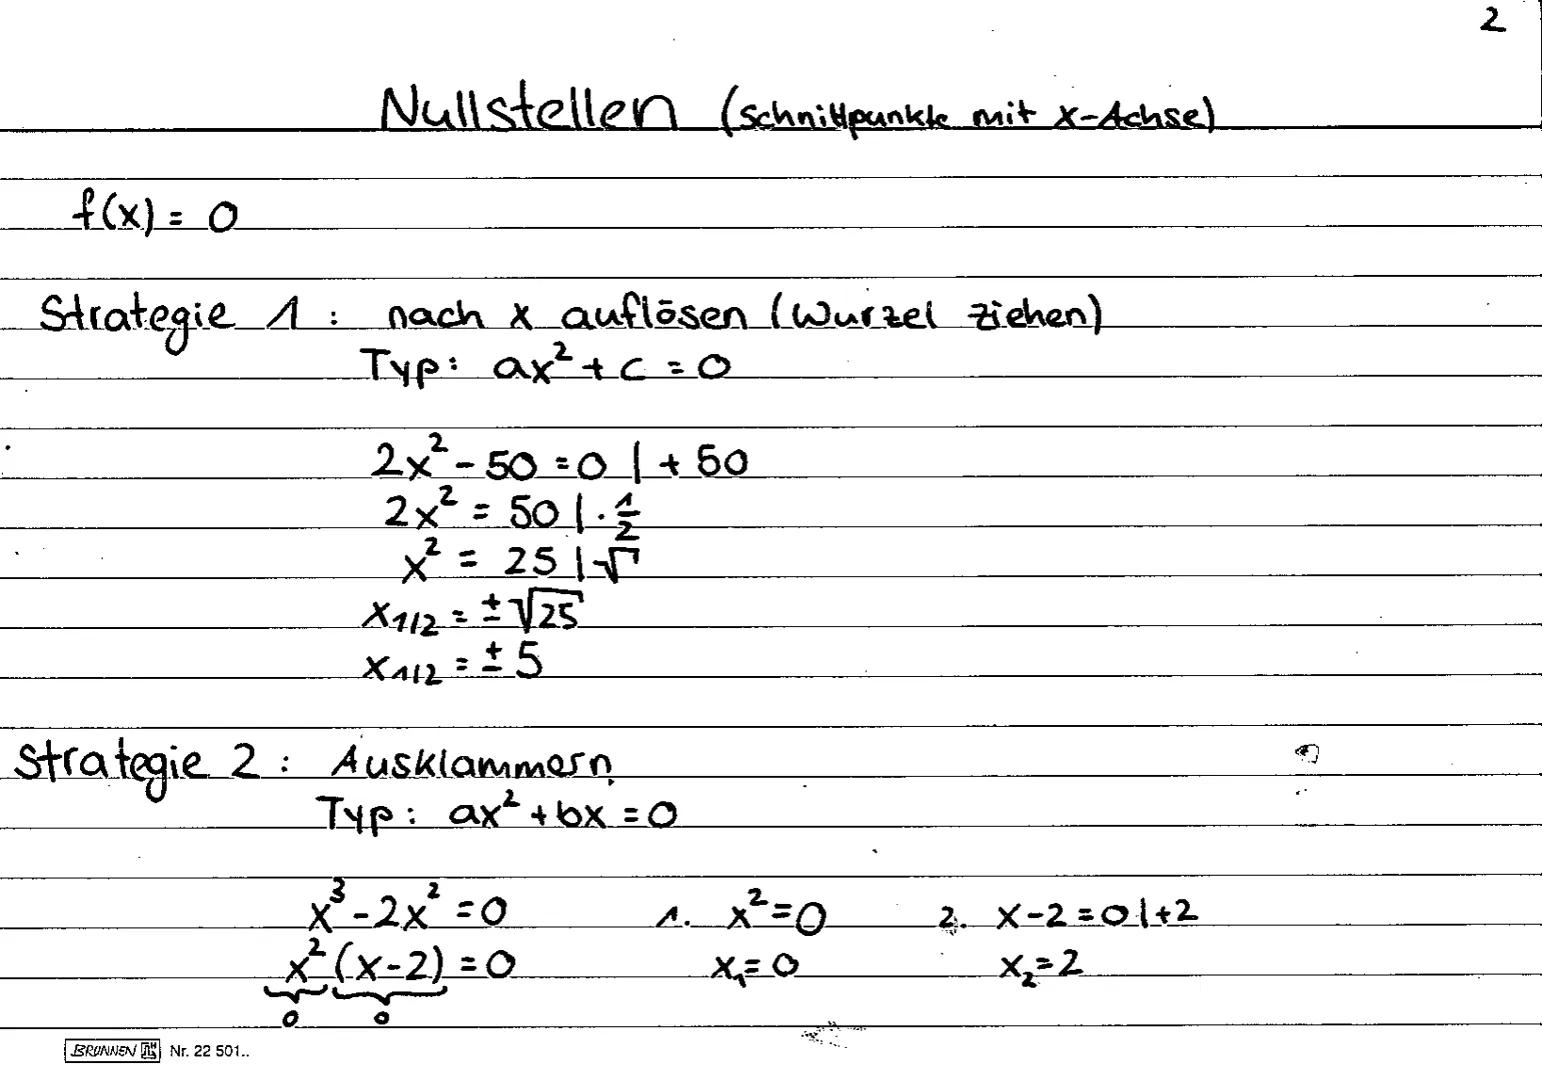 2
Nullstellen (Schnittpunkte mit x-Achse)
f(x) = 0
Strategie 1 : nach x auflösen (Wurzel ziehen)
Typ: ax² + c = 0
2x² - 50 = 0 | + 50
2x² = 50 | · 1/2
x² = 25 | √
x₁/₂ = ± √25
x₁/₂ = ± 5
Strategie 2 : Ausklammern
Typ: ax² + bx = 0
x³ - 2x² = 0 1. x² = 0 2. x - 2 = 0 | + 2
x² (x - 2) = 0 x₁ = 0 x₂ = 2
0 0
BRUNNEN Nr. 22 501..